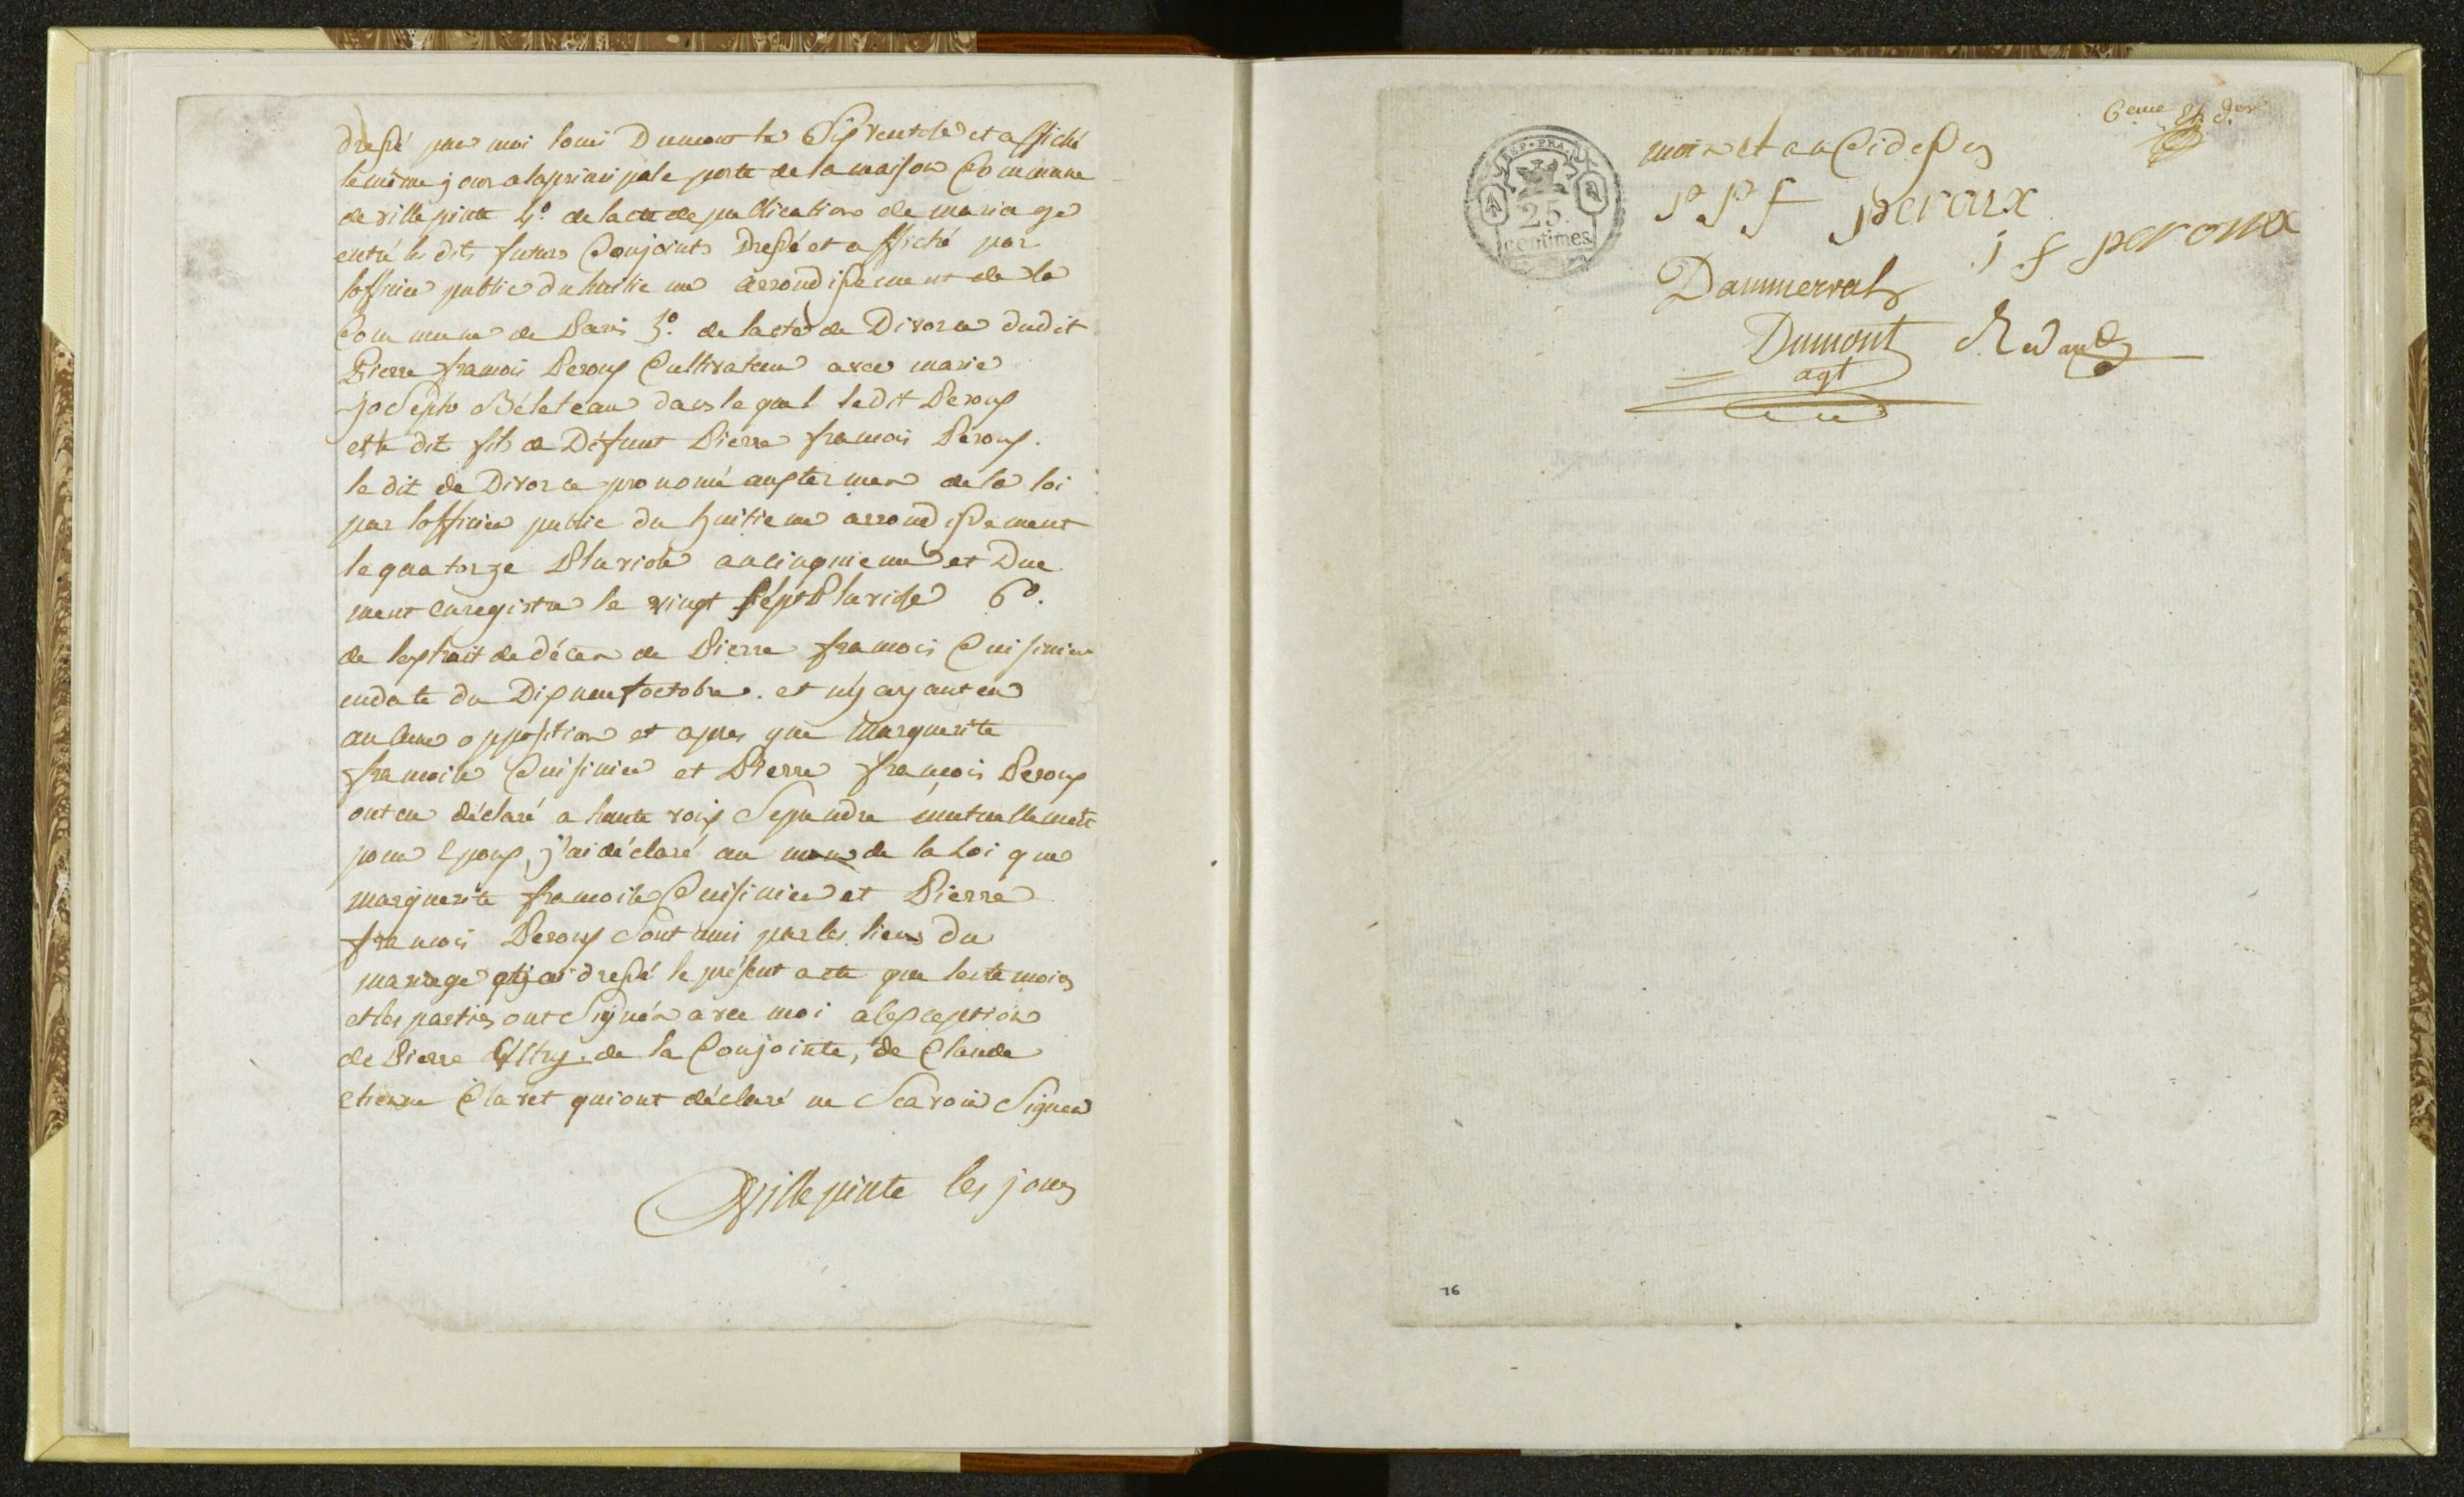 dressé par moi louis Dumont le Six ventose et affiché
le même jour a la principale porte de la maison Commune
de villepinte 4.º de lacte de publication de mariage
entre les dits futurs Conjoints Dressé et affiché par
lofficier public du huitieme arrondissement de la
Commune de Paris 5.º de lacte de Divorce dudit
Pierre francois Peroux Cultivateur avec marie
joseph Béleteau dans le quel ledit Peroux
est dit fils de Défunt Pierre francois Peroux.
le dit de Divorce prononcé aux termes de la loi
par lofficier public du huitieme arrondissement
le quatorze Pluviose an cinquieme et Due
ment enregistré le vingt sept Pluviose 6º.
de lextrait de décès de Pierre francois Cuisinier
en date du Dix neuf octobre. et ny ayant eu
aucune opposition et apres que Marguerite
francoise Cuisinier et Pierre francois Peroux
ont eu déclaré a haute voix Se prendre mutuellement
pour Epoux, j'ai déclaré au nom de la Loi que
marguerite francoise Cuisinier et Pierre
francois Peroux Sont unis par les liens du
mariage et j'ai dressé le présent acte que les temoins
et les parties ont Signés avec moi a lexception
de Pierre de la Conjointe, de Claude
etienne Claret qui ont déclaré ne Scavoir Signer
Villepinte les jours
6eme et der
REP. FRA.
25
centimes
mois et an Cidessus
P P f peroux
j f peroux
Dammerval
Dumont
agt
76